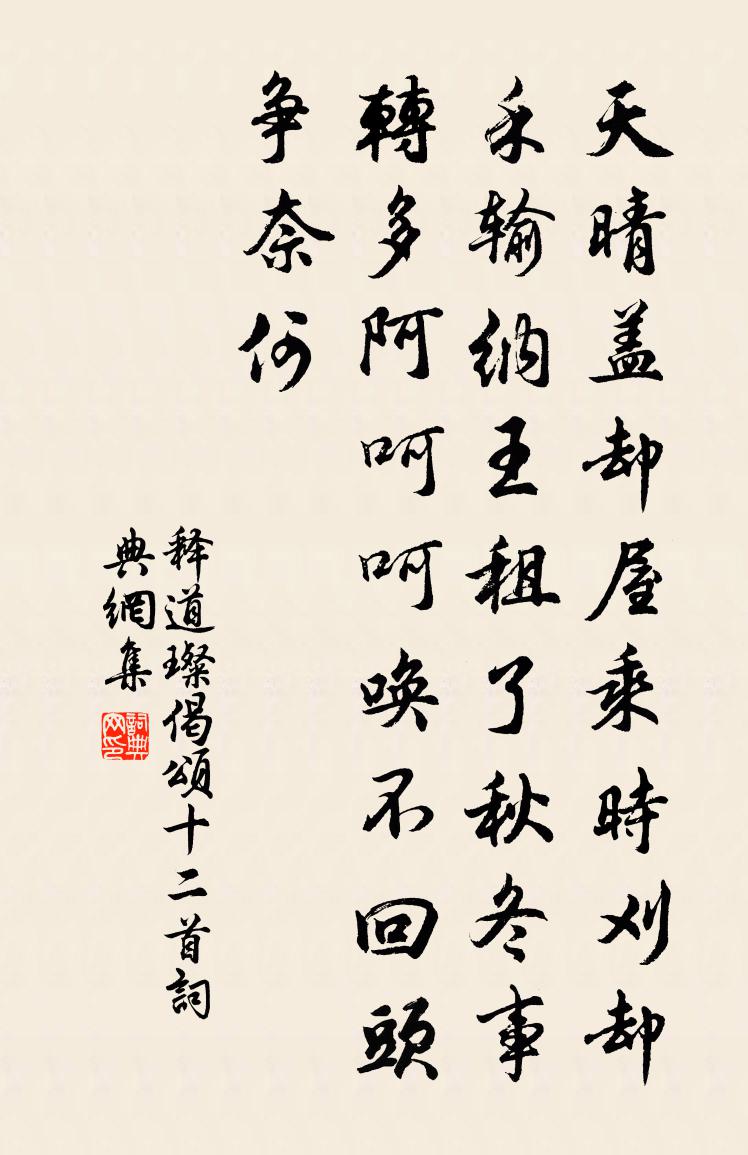 天晴盖却屋乘時刈却
禾輸納王租了秋冬事
轉多阿呵呵喚不回頭
争奈何
释道璨偈頌十二首詞
典網集
詞典
网印